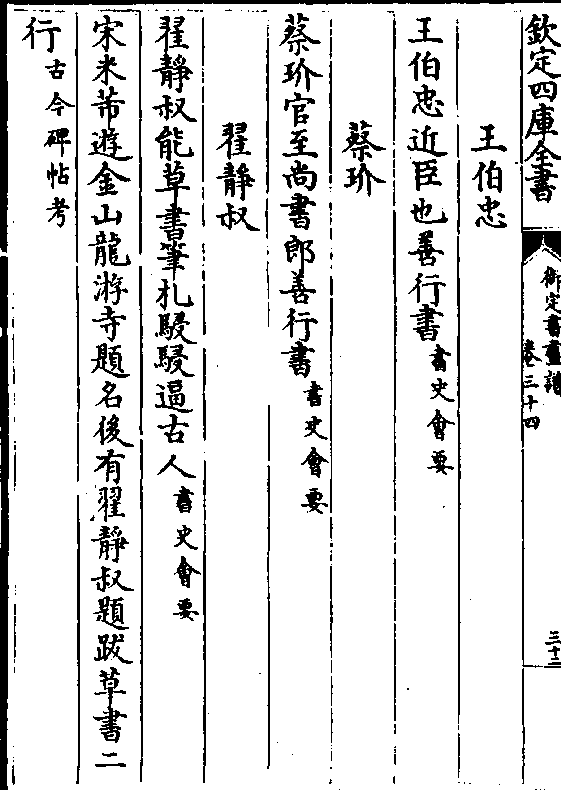 欽定四庫全書
御定書畫譜
卷三十四
三十二
王伯忠
王伯忠近臣也善行書書史會要
蔡玠
蔡玠官至尚書郎善行書書史會要
翟靜叔
翟靜叔能草書筆札駸駸逼古人書史會要
宋米芾遊金山龍游寺題名後有翟靜叔題跋草書二
行古今碑帖考